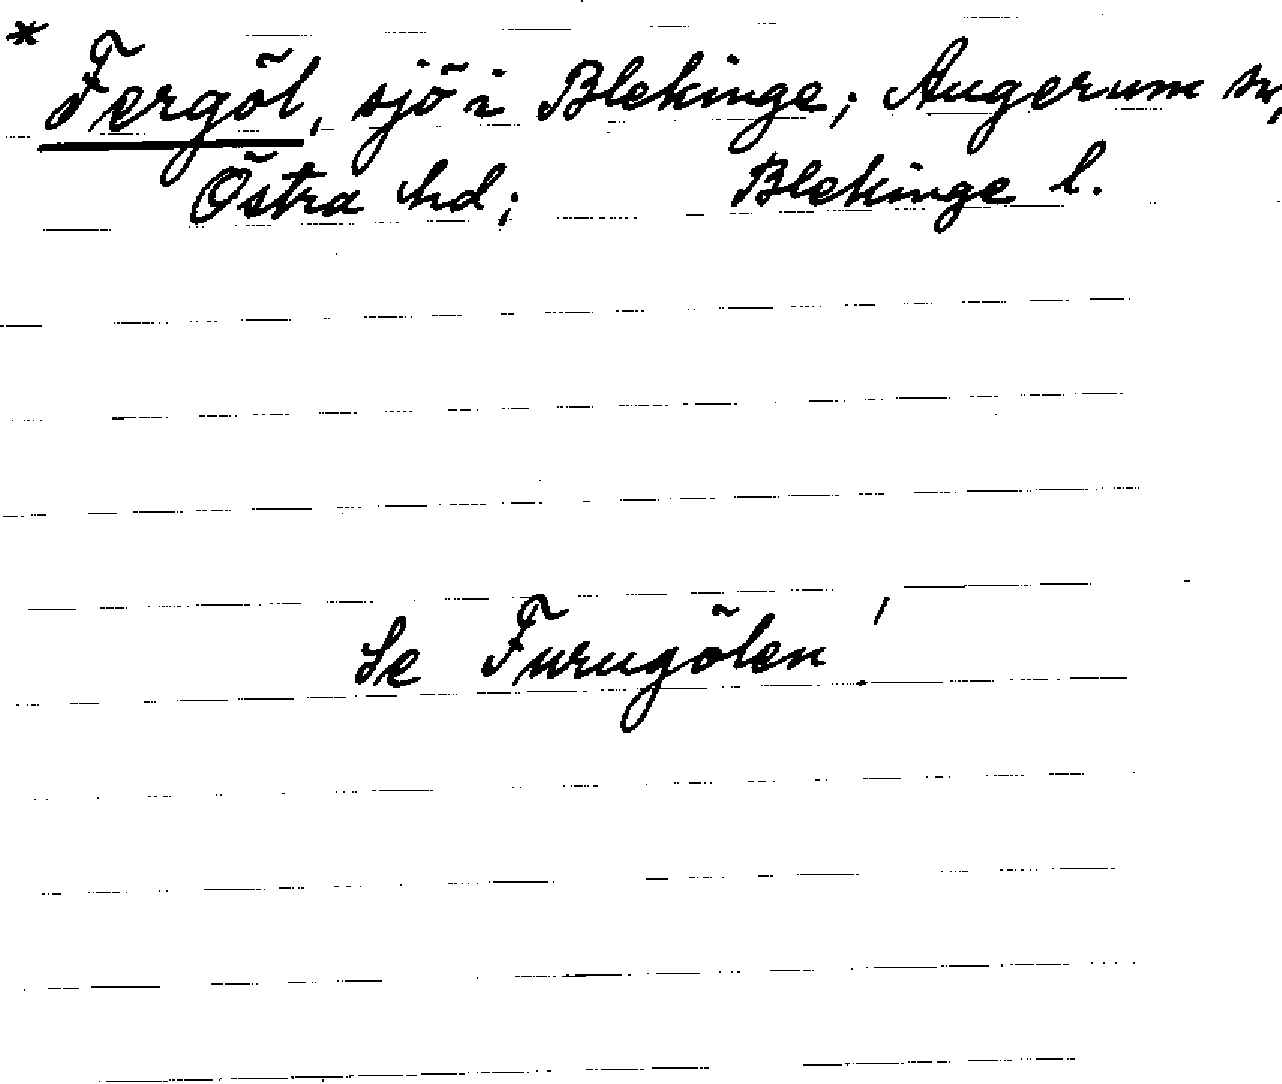 * Fergöl, sjö i Blekinge; Augerum sn,
Östra hd; Blekinge l.
Se Furugölen!